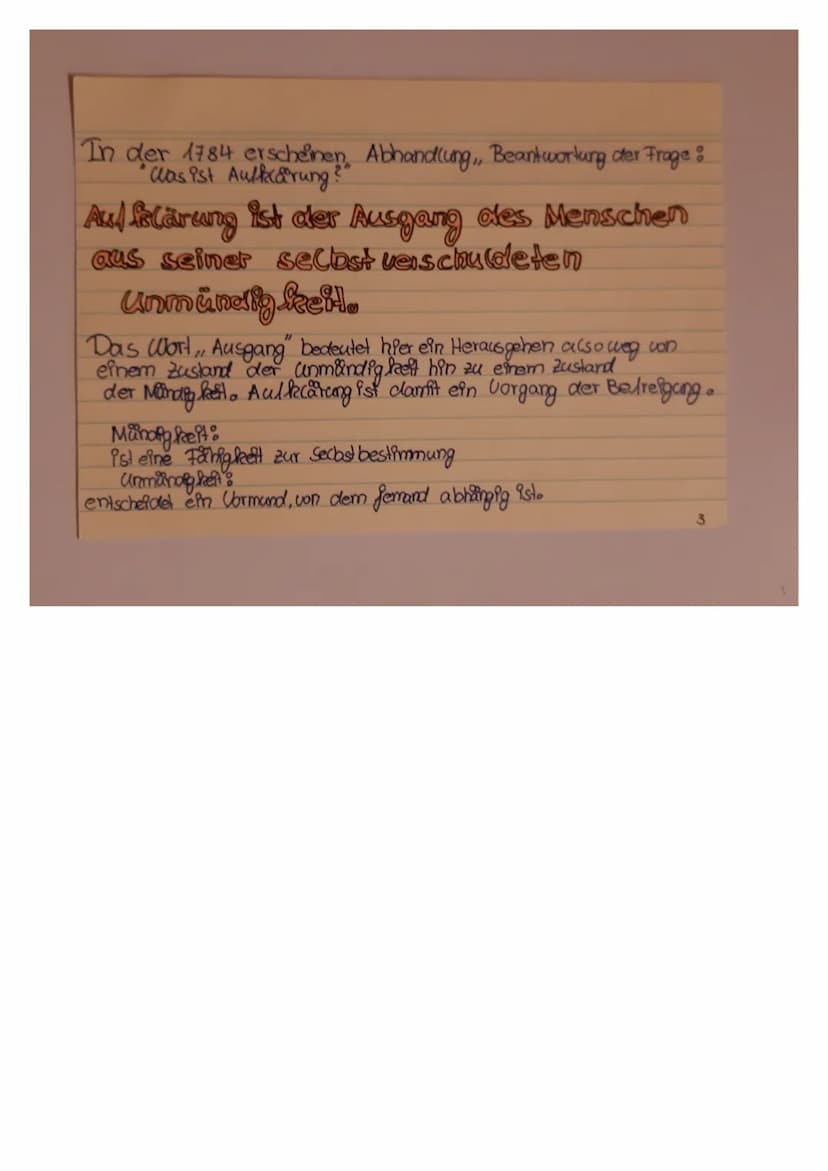 In der 1784 erscheinen Abhandlung „Beantwortung der Frage:
"Was ist Aufklärung?"
Aufklärung ist der Ausgang des Menschen
aus seiner selbst verschuldeten
Unmündigkeit.
Das Wort „Ausgang" bedeutet hier ein Herausgehen also weg von
einem Zustand der Unmündigkeit hin zu einem Zustand
der Mündigkeit. Aufklärung ist damit ein Vorgang der Befreigung.
Mündigkeit:
ist eine Fähigkeit zur Selbstbestimmung
Unmündigkeit:
entscheidet ein Vormund, von dem jemand abhängig ist.
3